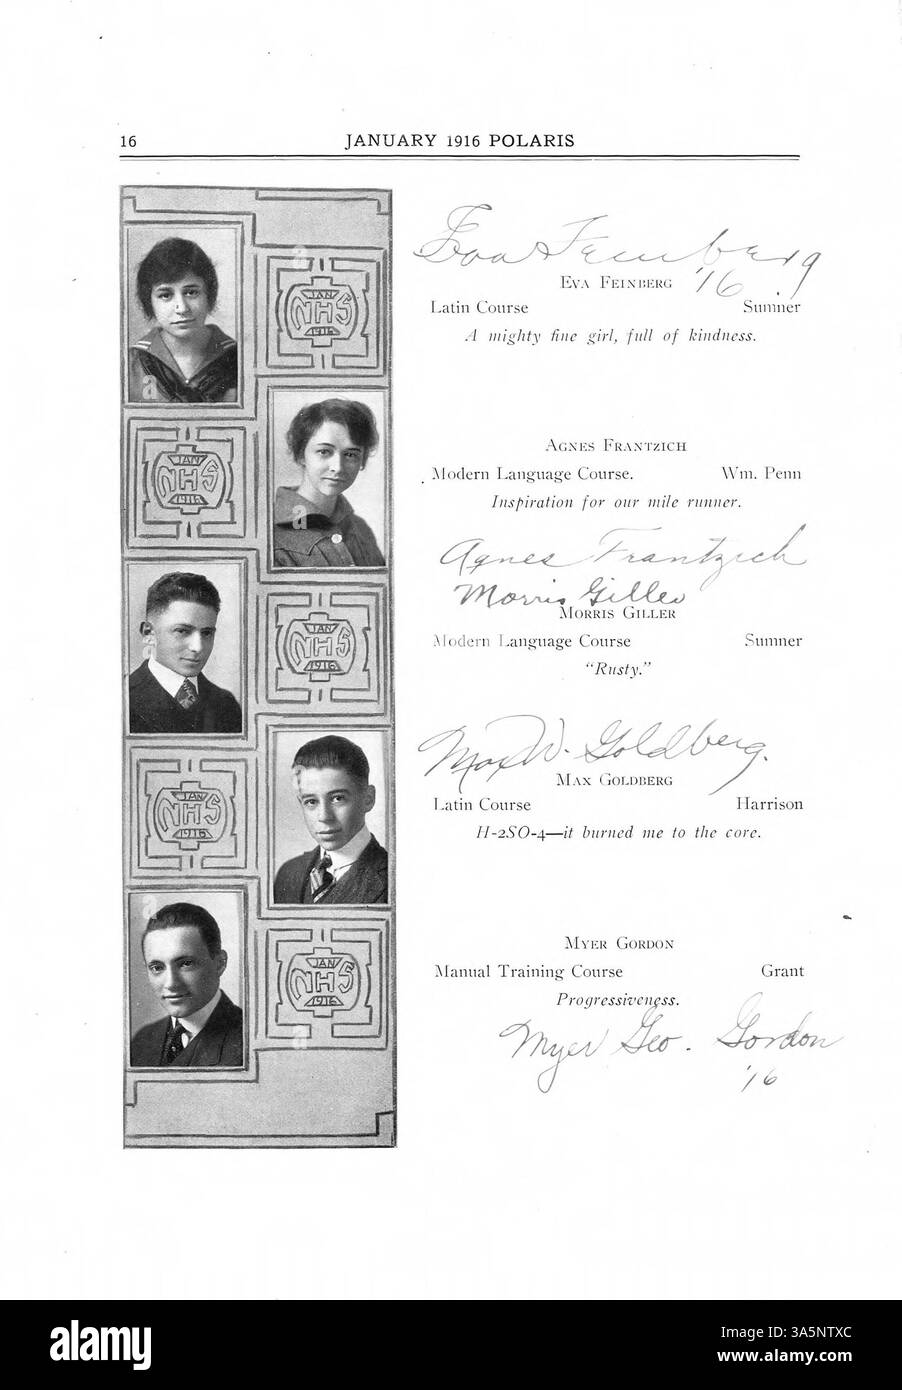 16 JANUARY 1916 POLARIS
Eva Feinberg
'16
EVA FEINBERG
Latin Course Sumner
A mighty fine girl, full of kindness.
JAN
NHS
1916
AGNES FRANTZICH
Modern Language Course. Wm. Penn
Inspiration for our mile runner.
JAN
NHS
1916
Agnes Frantzich
Morris Giller
MORRIS GILLER
Modern Language Course Sumner
"Rusty."
JAN
NHS
1916
Max W. Goldberg.
MAX GOLDBERG
Latin Course Harrison
H-2SO-4—it burned me to the core.
JAN
NHS
1916
MYER GORDON
Manual Training Course Grant
Progressiveness.
JAN
NHS
1916
Myer Geo. Gordon
'16
alamy
Image ID: 3A5NTXC
www.alamy.com